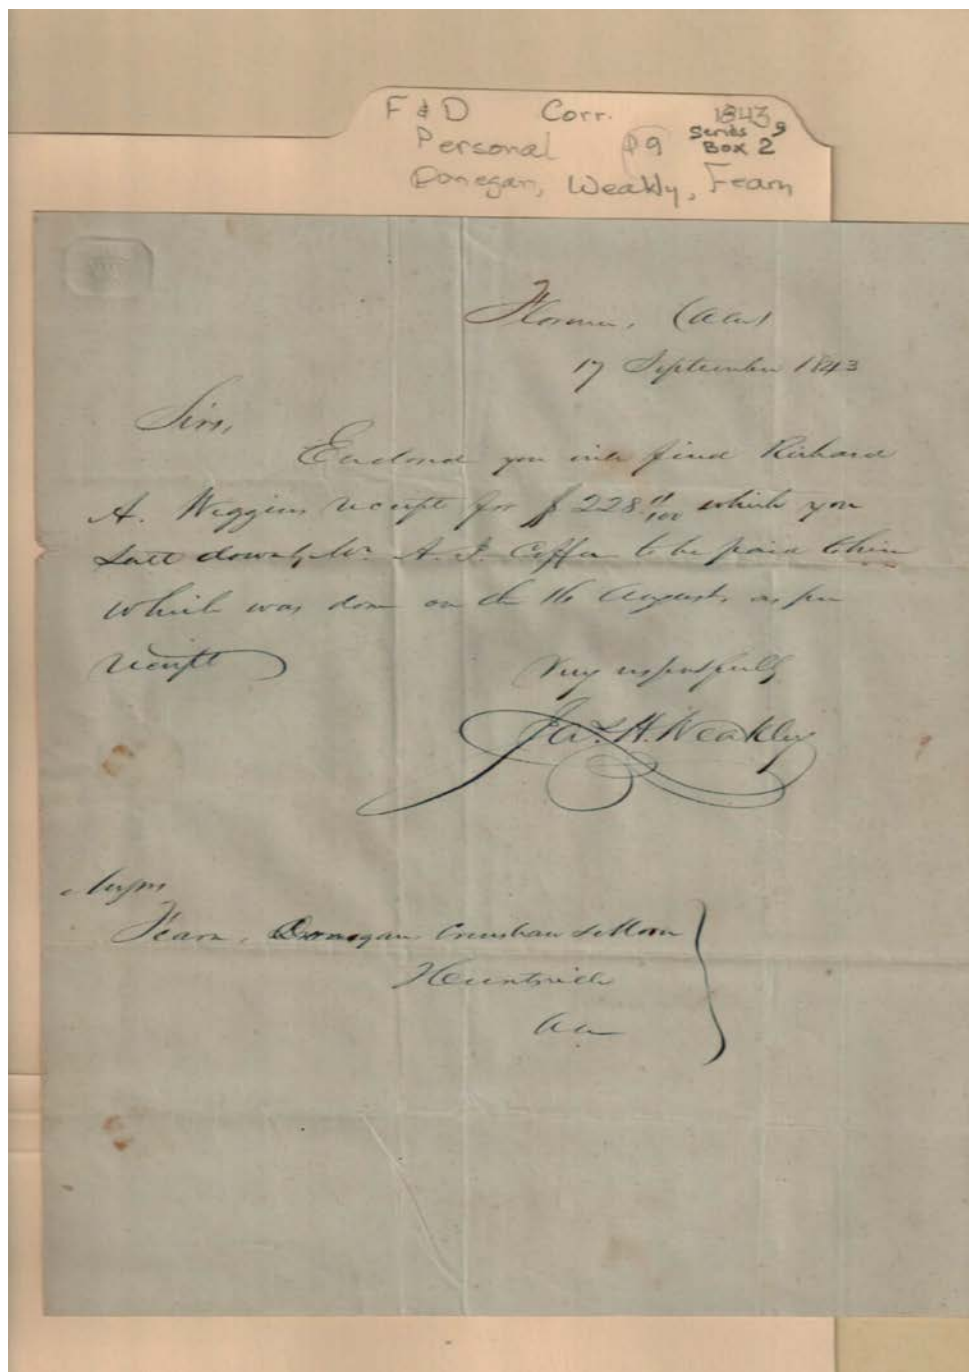 F & D Corr. 1843
Personal P9 Series 9
Box 2
Donegan, Weakly, Fearn
Florence, (Ala)
17 September 1843
Sirs,
Enclosed you will find Richard
A. Wiggins receipt for $228 which you
sent down by Mr. A. J. Coffee to be paid to him
which was done on the 16 August, as per
receipt
Very respectfully
Jas. H. Weakley
Messrs
Fearn, Donegan Crenshaw & Moore
Huntsville
Ala